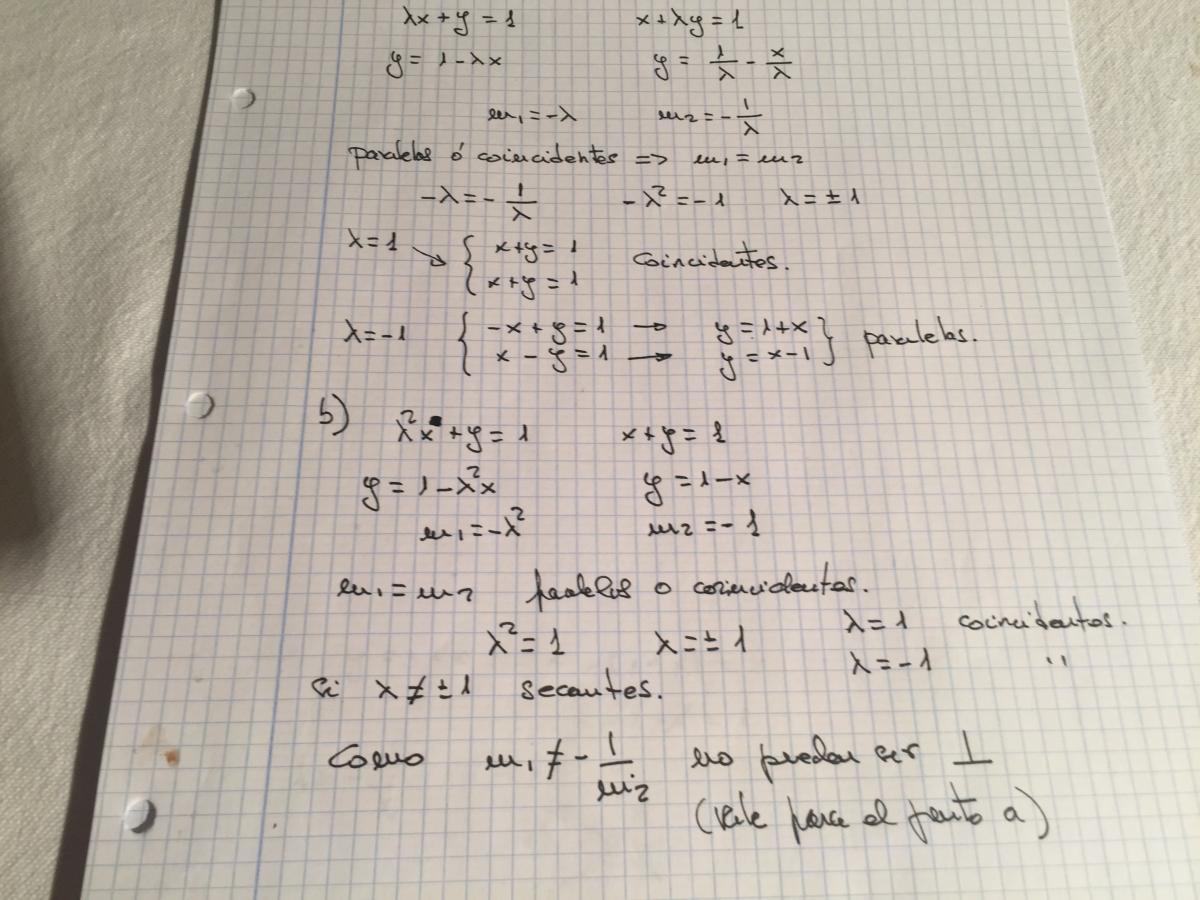 λx + y = 1 x + λy = 1
y = 1 - λx y = 1/λ - x/λ
m₁ = -λ m₂ = -1/λ
paralelas ó coincidentes => m₁ = m₂
-λ = -1/λ -λ² = -1 λ = ± 1
λ = 1 ↘ { x+y = 1 Coincidentes.
x+y = 1
λ = -1 { -x + y = 1 → y = 1+x } paralelas.
x - y = 1 → y = x-1
b) λ²x + y = 1 x + y = 1
y = 1 - λ²x y = 1 - x
m₁ = -λ² m₂ = -1
m₁ = m₂ paralelas o coincidentes.
λ² = 1 λ = ± 1 λ = 1 coincidentes.
λ = -1 "
Si λ ≠ ± 1 secantes.
Como m₁ ≠ -1/m₂ no puedan ser ⊥
(vale para el punto a)